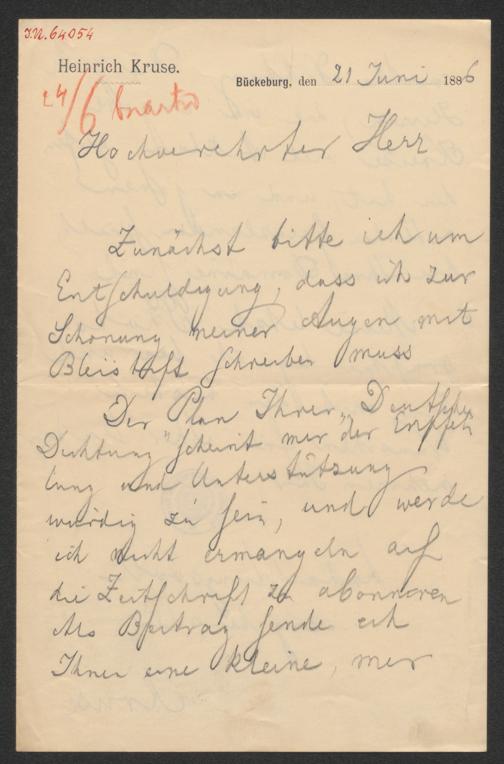 I.N. 64054
Heinrich Kruse.
Bückeburg, den 21 Juni 1886
24/6
Hochverehrter Herr
Zunächst bitte ich um
Entschuldigung, dass ich zur
Schonung meiner Augen mit
Bleistift schreiben muss
Der Plan Ihrer "Deutschen
Dichtung" scheint mir der Empfeh
lung und Unterstützung
würdig zu sein, und werde
ich nicht ermangeln auf
die Zeitschrift zu abonniren
Als Beitrag sende ich
Ihnen eine kleine, mir